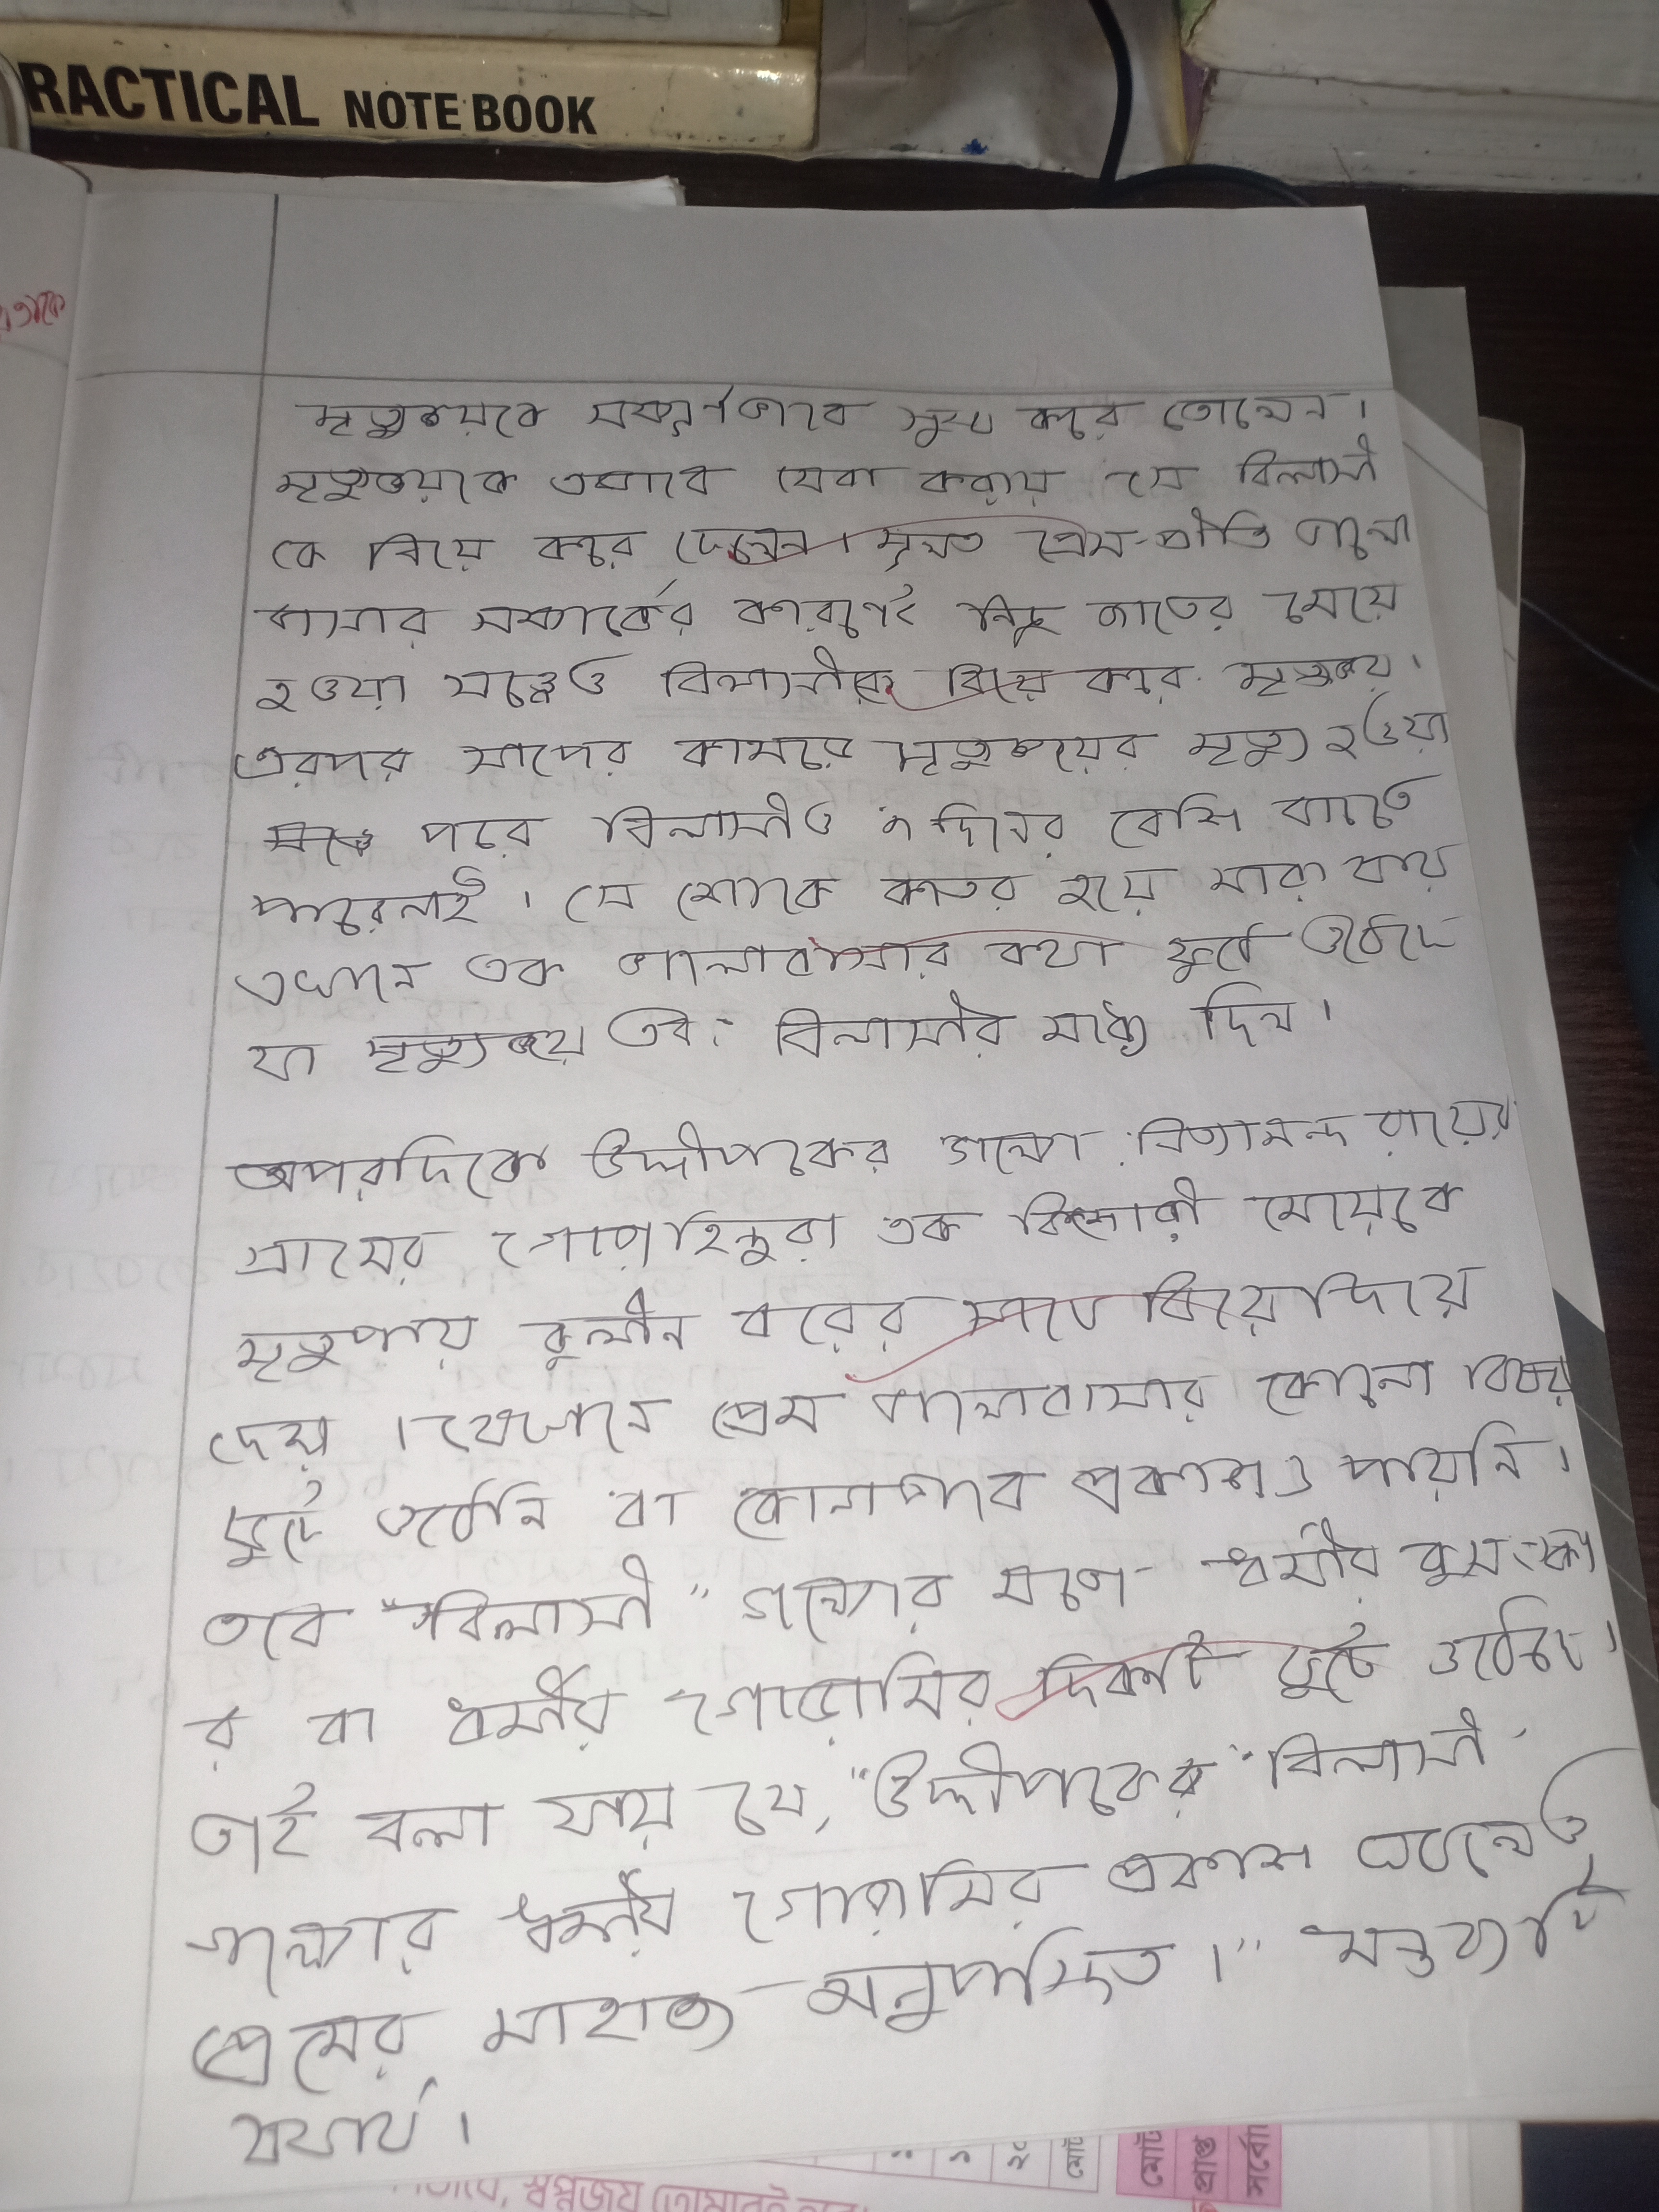 RACTICAL NOTE BOOK
মৃত্যুঞ্জয়কে সম্পূর্ণভাবে সুস্থ করে তোলেন।
মৃত্যুঞ্জয়কে এভাবে সেবা করায় সে বিলাসী
কে বিয়ে করে ফেলেন। মূলত প্রেম-প্রীতি ভালো
বাসার সম্পর্কের কারণেই নিচু জাতের মেয়ে
হওয়া সত্ত্বেও বিলাসীকে বিয়ে করে মৃত্যুঞ্জয়।
এরপর সাপের কামড়ে মৃত্যুঞ্জয়ের মৃত্যু হওয়া
পরে বিলাসীও ৭ দিনের বেসি বাচতে
পারেনাই। সে শোকে কাতর হয়ে মারা যায়
এখানে এক ভালোবাসার কথা ফুটে ওঠেছে
যা মৃত্যুঞ্জয় এবং বিলাসীর মধ্যে ছিল।
অপরদিকে উদ্দীপকের গল্পে নিত্যানন্দ রায়ের
গ্রামের গোড়া হিন্দুরা এক কিশোরী মেয়েকে
মৃতপ্রায় কুলীন বরের সাথে বিয়ে দিয়ে
দেয়। যেখানে প্রেম ভালোবাসার কোনো বিষয়
ফুটে ওঠেনি বা কোনোভাবে প্রকাশও পায়নি।
তবে "বিলাসী" গল্পের মতো ধর্মীয় কুসংস্কা
র বা ধর্মীয় গোড়ামির দিকটি ফুটে ওঠেছে।
তাই বলা যায় যে, "উদ্দীপকের "বিলাসী"
গল্পের ধর্মীয় গোড়ামির প্রকাশ ঘটলেও
প্রেমের মাহাত্ম্য অনুপস্থিত।" মন্তব্যটি
যথার্থ।
মোট
মোট
প্রাপ্ত